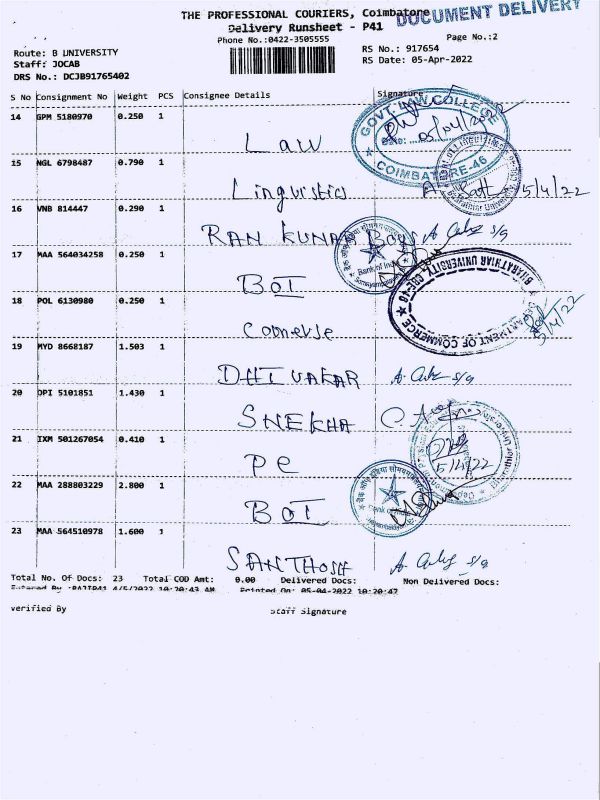 THE PROFESSIONAL COURIERS, Coimbatore
DOCUMENT DELIVERY
Delivery Runsheet - P41
Phone No.:0422-3505555
Page No.:2
Route: B UNIVERSITY
RS No.: 917654
Staff: JOCAB
RS Date: 05-Apr-2022
DRS No.: DCJB91765402
S No Consignment No Weight PCS Consignee Details Signature
14 GPM 5180970 0.250 1
Law
GOVT. LAW COLLEGE
Date: 05/04/2022
COIMBATORE-46
15 NGL 6798487 0.790 1
Linguistics
5/4/22
16 VNB 814447 0.290 1
RAN KUNAR Boys
17 MAA 564034258 0.250 1
BOI
Bank of India
BHARATHIAR UNIVERSITY, CBE-46
DEPARTMENT OF COMMERCE
18 POL 6130980 0.250 1
Comerse
5/4/22
19 MYD 8668187 1.503 1
DHIVAKAR
20 OPI 5101851 1.430 1
SNEKHA
21 IXM 501267054 0.410 1
PE
5/4/22
22 MAA 288803229 2.800 1
BOI
23 MAA 564510978 1.600 1
SANTHOSH
Total No. Of Docs: 23 Total COD Amt: 0.00 Delivered Docs: Non Delivered Docs:
Entered By :RAJIP41 4/5/2022 10:20:43 AM Printed On: 05-04-2022 10:20:47
verified By Staff Signature